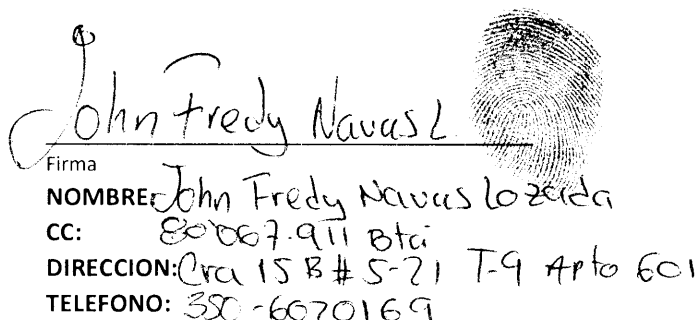 John Fredy Navas L.
Firma
NOMBRE: John Fredy Navas Lozada
CC: 80'067.911 Bta
DIRECCION: Cra 15 B # 5-21 T-9 Apto 601
TELEFONO: 350-6070169